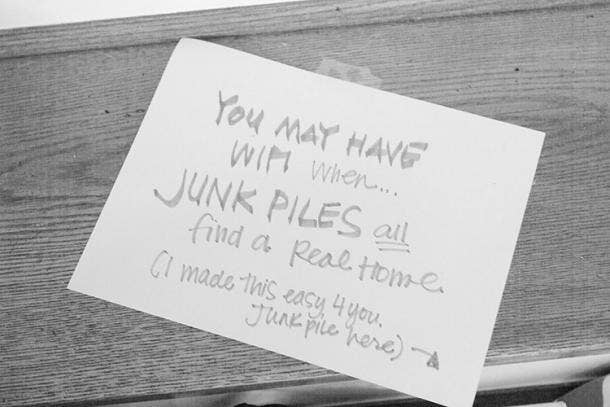 YOU MAY HAVE
WIFI when...
JUNK PILES all
find a Real Home.
(I made this easy 4 you.
Junk pile here)